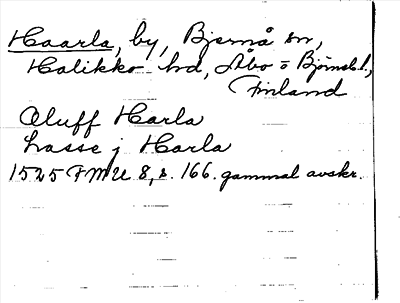 Haarla, by, Bjernå sn,
Halikko hd, Åbo o Björnebl.,
Finland
Oluff Harla
Lasse j Harla
1525 FMU 8, s. 166. gammal avskr.